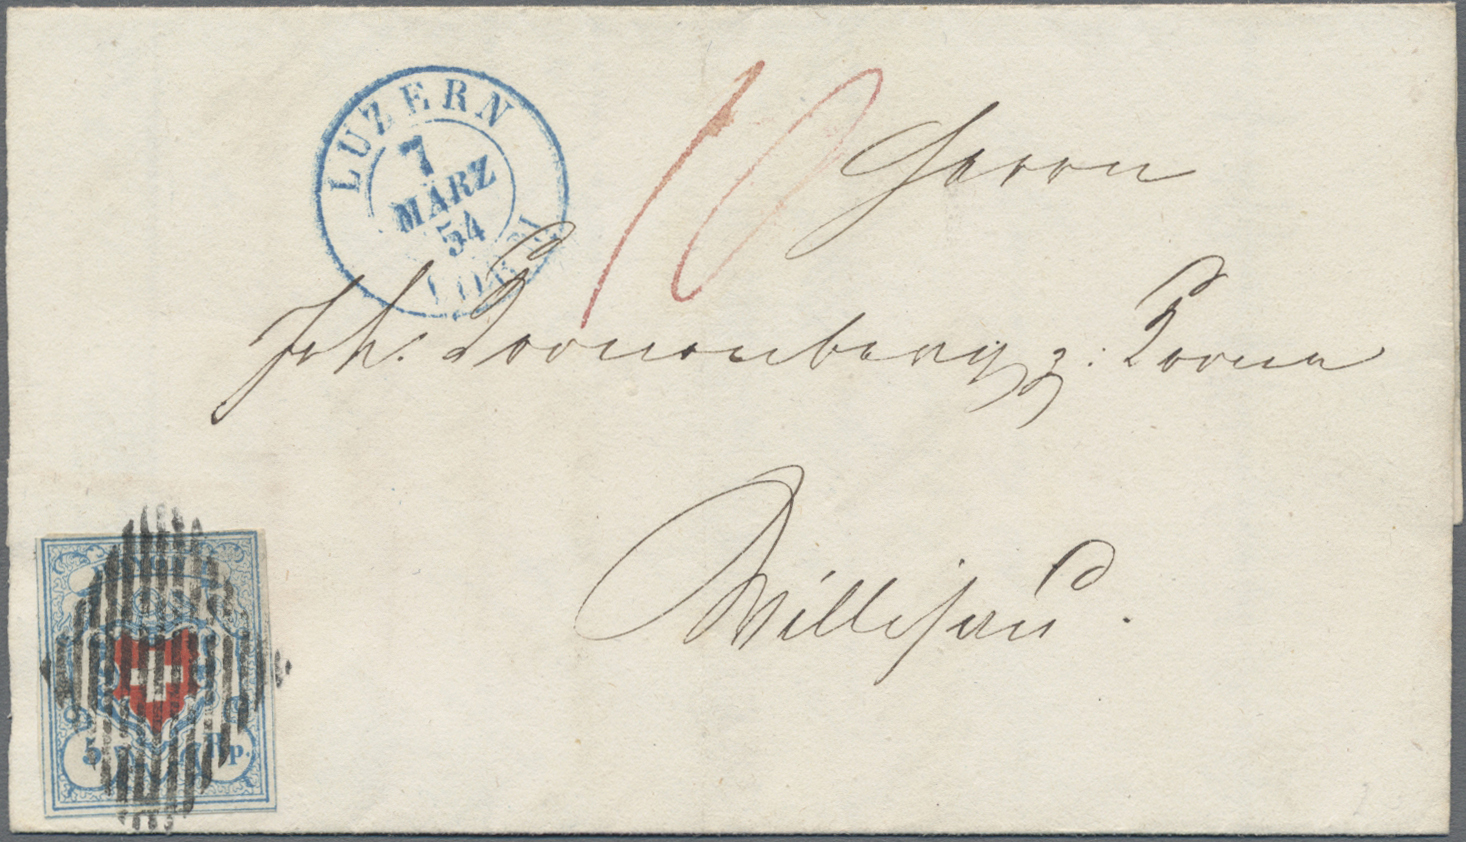 LUZERN
7
MÄRZ
54
10
Herrn
Joh. Kronenberg z. Krone
Willisau.
5 Rp.